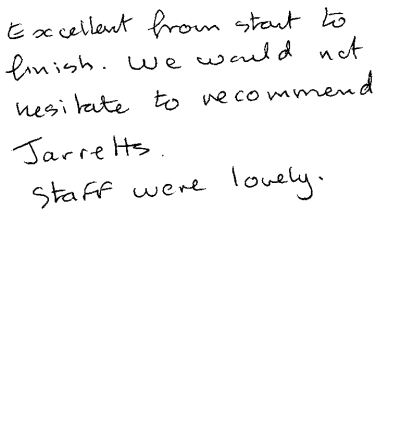 Excellent from start to
finish. We would not
hesitate to recommend
Jarretts.
Staff were lovely.